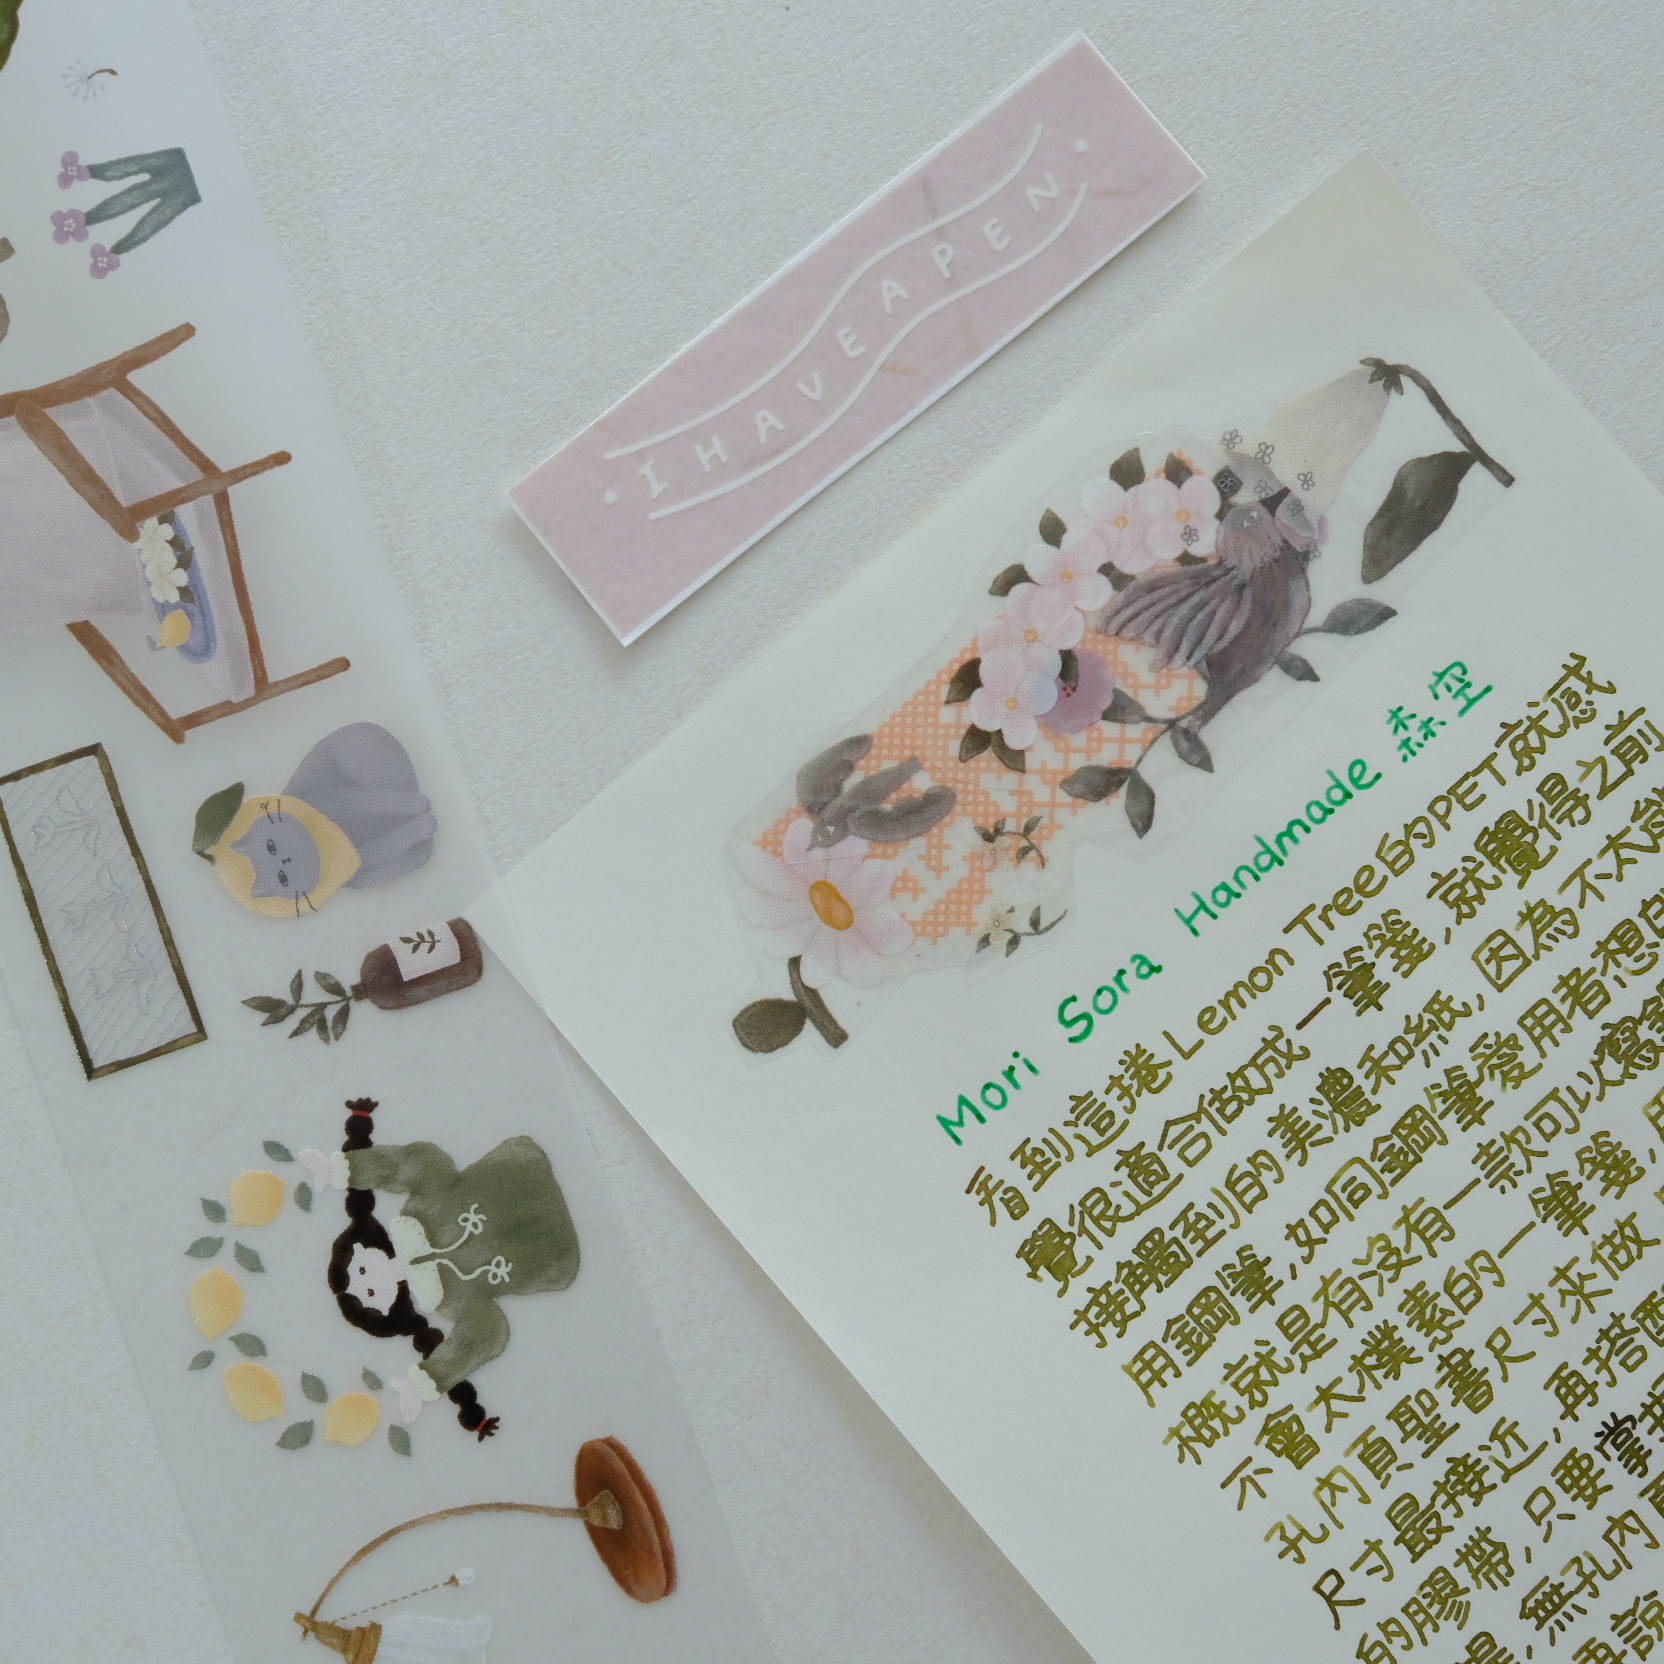 I HAVE A PEN
Mori Sora Handmade 森空
看到這捲 Lemon Tree的PET就感
覺很適合做成一筆箋,就覺得之前
接觸到的美濃和紙,因為不太能
用鋼筆,如同鋼筆愛用者想的
概就是有沒有一款可以寫鋼
不會太樸素的一筆箋,用
孔內頁聖書尺寸來做
尺寸最接近,再搭配
的膠帶,只要掌握
是,無孔內
再說